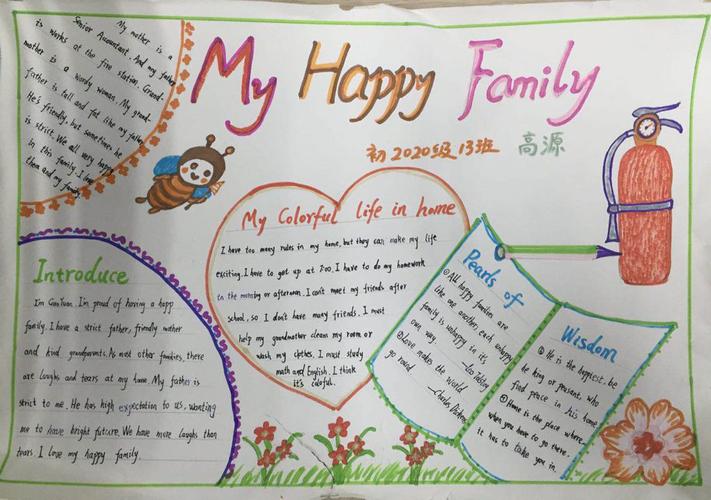 My Happy Family
初2020级13班 高源
My mother is a
Senior Accountant. And my father
is works at the fire station. Grand-
mother is a wordy woman. My grand-
father is tall and fat like my father.
He's friendly, but sometimes he
is strict. We all very happy
in this family. I love
them and my family.
Introduce
I'm GaoYuan. I'm proud of having a happ
family. I have a strict father, friendly mother
and kind grandparents. As most other families, there
are laughs and tears at my home. My father is
strict to me. He has high expectation to us, wanting
me to have bright future. We have more laughs than
tears. I love my happy family.
My Colorful life in home
I have too many rules in my home, but they can make my life
exciting. I have to get up at 7:00. I have to do my homework
in the morning or afternoon. I can't meet my friends after
school, so I don't have many friends. I must
help my grandmother clean my room or
wash my clothes. I must study
math and English. I think
it's colorful.
Pearls of
①All happy families are
like one another, each unhappy
family is unhappy in its
own way.
②Love makes the world
go round.
—Charles Dickens
Wisdom
① He is the happiest, be
he king or peasant, who
find peace in his home.
② Home is the place where
when you have to go there.
it has to take you in.